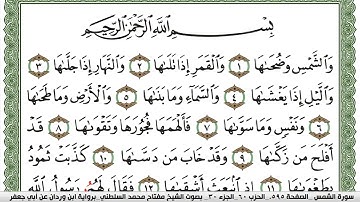 بِسْمِ اللَّهِ الرَّحْمَٰنِ الرَّحِيمِ
وَالشَّمْسِ وَضُحَىٰهَا ١ وَالْقَمَرِ إِذَا تَلَىٰهَا ٢ وَالنَّهَارِ إِذَا جَلَّىٰهَا ٣
وَالَّيْلِ إِذَا يَغْشَىٰهَا ٤ وَالسَّمَآءِ وَمَا بَنَىٰهَا ٥ وَالْأَرْضِ وَمَا طَحَىٰهَا
٦ وَنَفْسٍ وَمَا سَوَّىٰهَا ٧ فَأَلْهَمَهَا فُجُورَهَا وَتَقْوَىٰهَا ٨ قَدْ
أَفْلَحَ مَن زَكَّىٰهَا ٩ وَقَدْ خَابَ مَن دَسَّىٰهَا ١٠ كَذَّبَتْ ثَمُودُ
بِطَغْوَىٰهَا ١١ إِذِ انۢبَعَثَ أَشْقَىٰهَا ١٢ فَقَالَ لَهُمْ رَسُولُ اللَّهِ
سورة الشمس الصفحة ٥٩٥ الحزب ٦٠ الجزء ٣٠ بصوت الشيخ مفتاح محمد السلطني برواية ابن وردان عن أبي جعفر